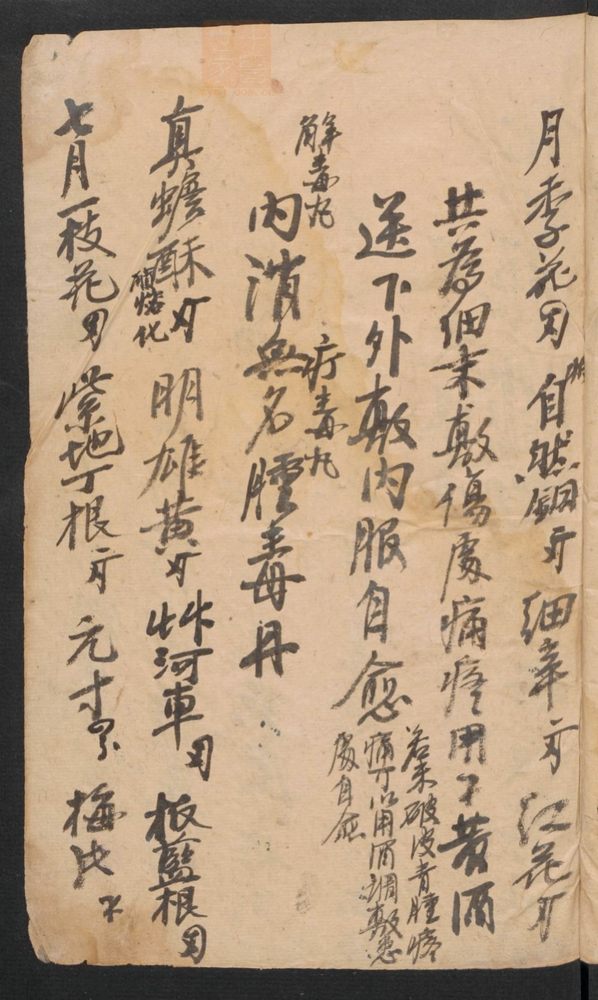 月季花 自然銅 細辛 红花
共為细末敷傷處痛疼用 黄酒
送下外敷内服自愈
若未破皮青腫疼
痛可以用酒調敷患
處自愈
解毒丸
疔毒丸
内消無名腫毒丹
真蟾酥 明雄黄 艸河車 板藍根
酒熔化
七月一枝花 紫地丁根 元寸 梅片